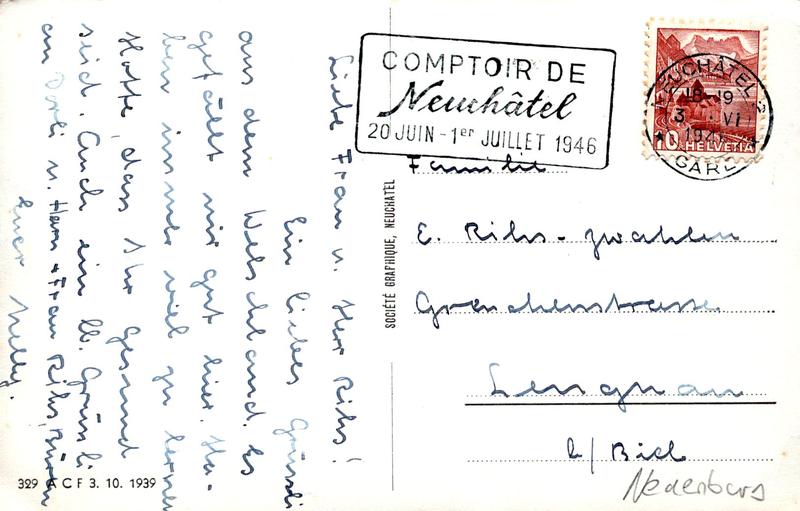 Liebe Frau u. Herr Rihs!
Ein liebes Grüssli
aus dem Welschland. Es
gefällt mir gut hier. Ha-
ben immer viel zu lernen
Hoffe, dass Ihr gesund
seid. Auch ein lb. Grüssli
an Dorli u. Herr + Frau Rihs, Büren
Euer Nelly.
329 A C F 3. 10. 1939
SOCIÉTÉ GRAPHIQUE, NEUCHATEL
COMPTOIR DE
Neuchâtel
20 JUIN - 1er JUILLET 1946
NEUCHÂTEL 2
18-19
VI
GARE
10 HELVETIA
Familie
E. Rihs-Zwahlen
Grenchenstrasse
Lengnau
b/ Biel